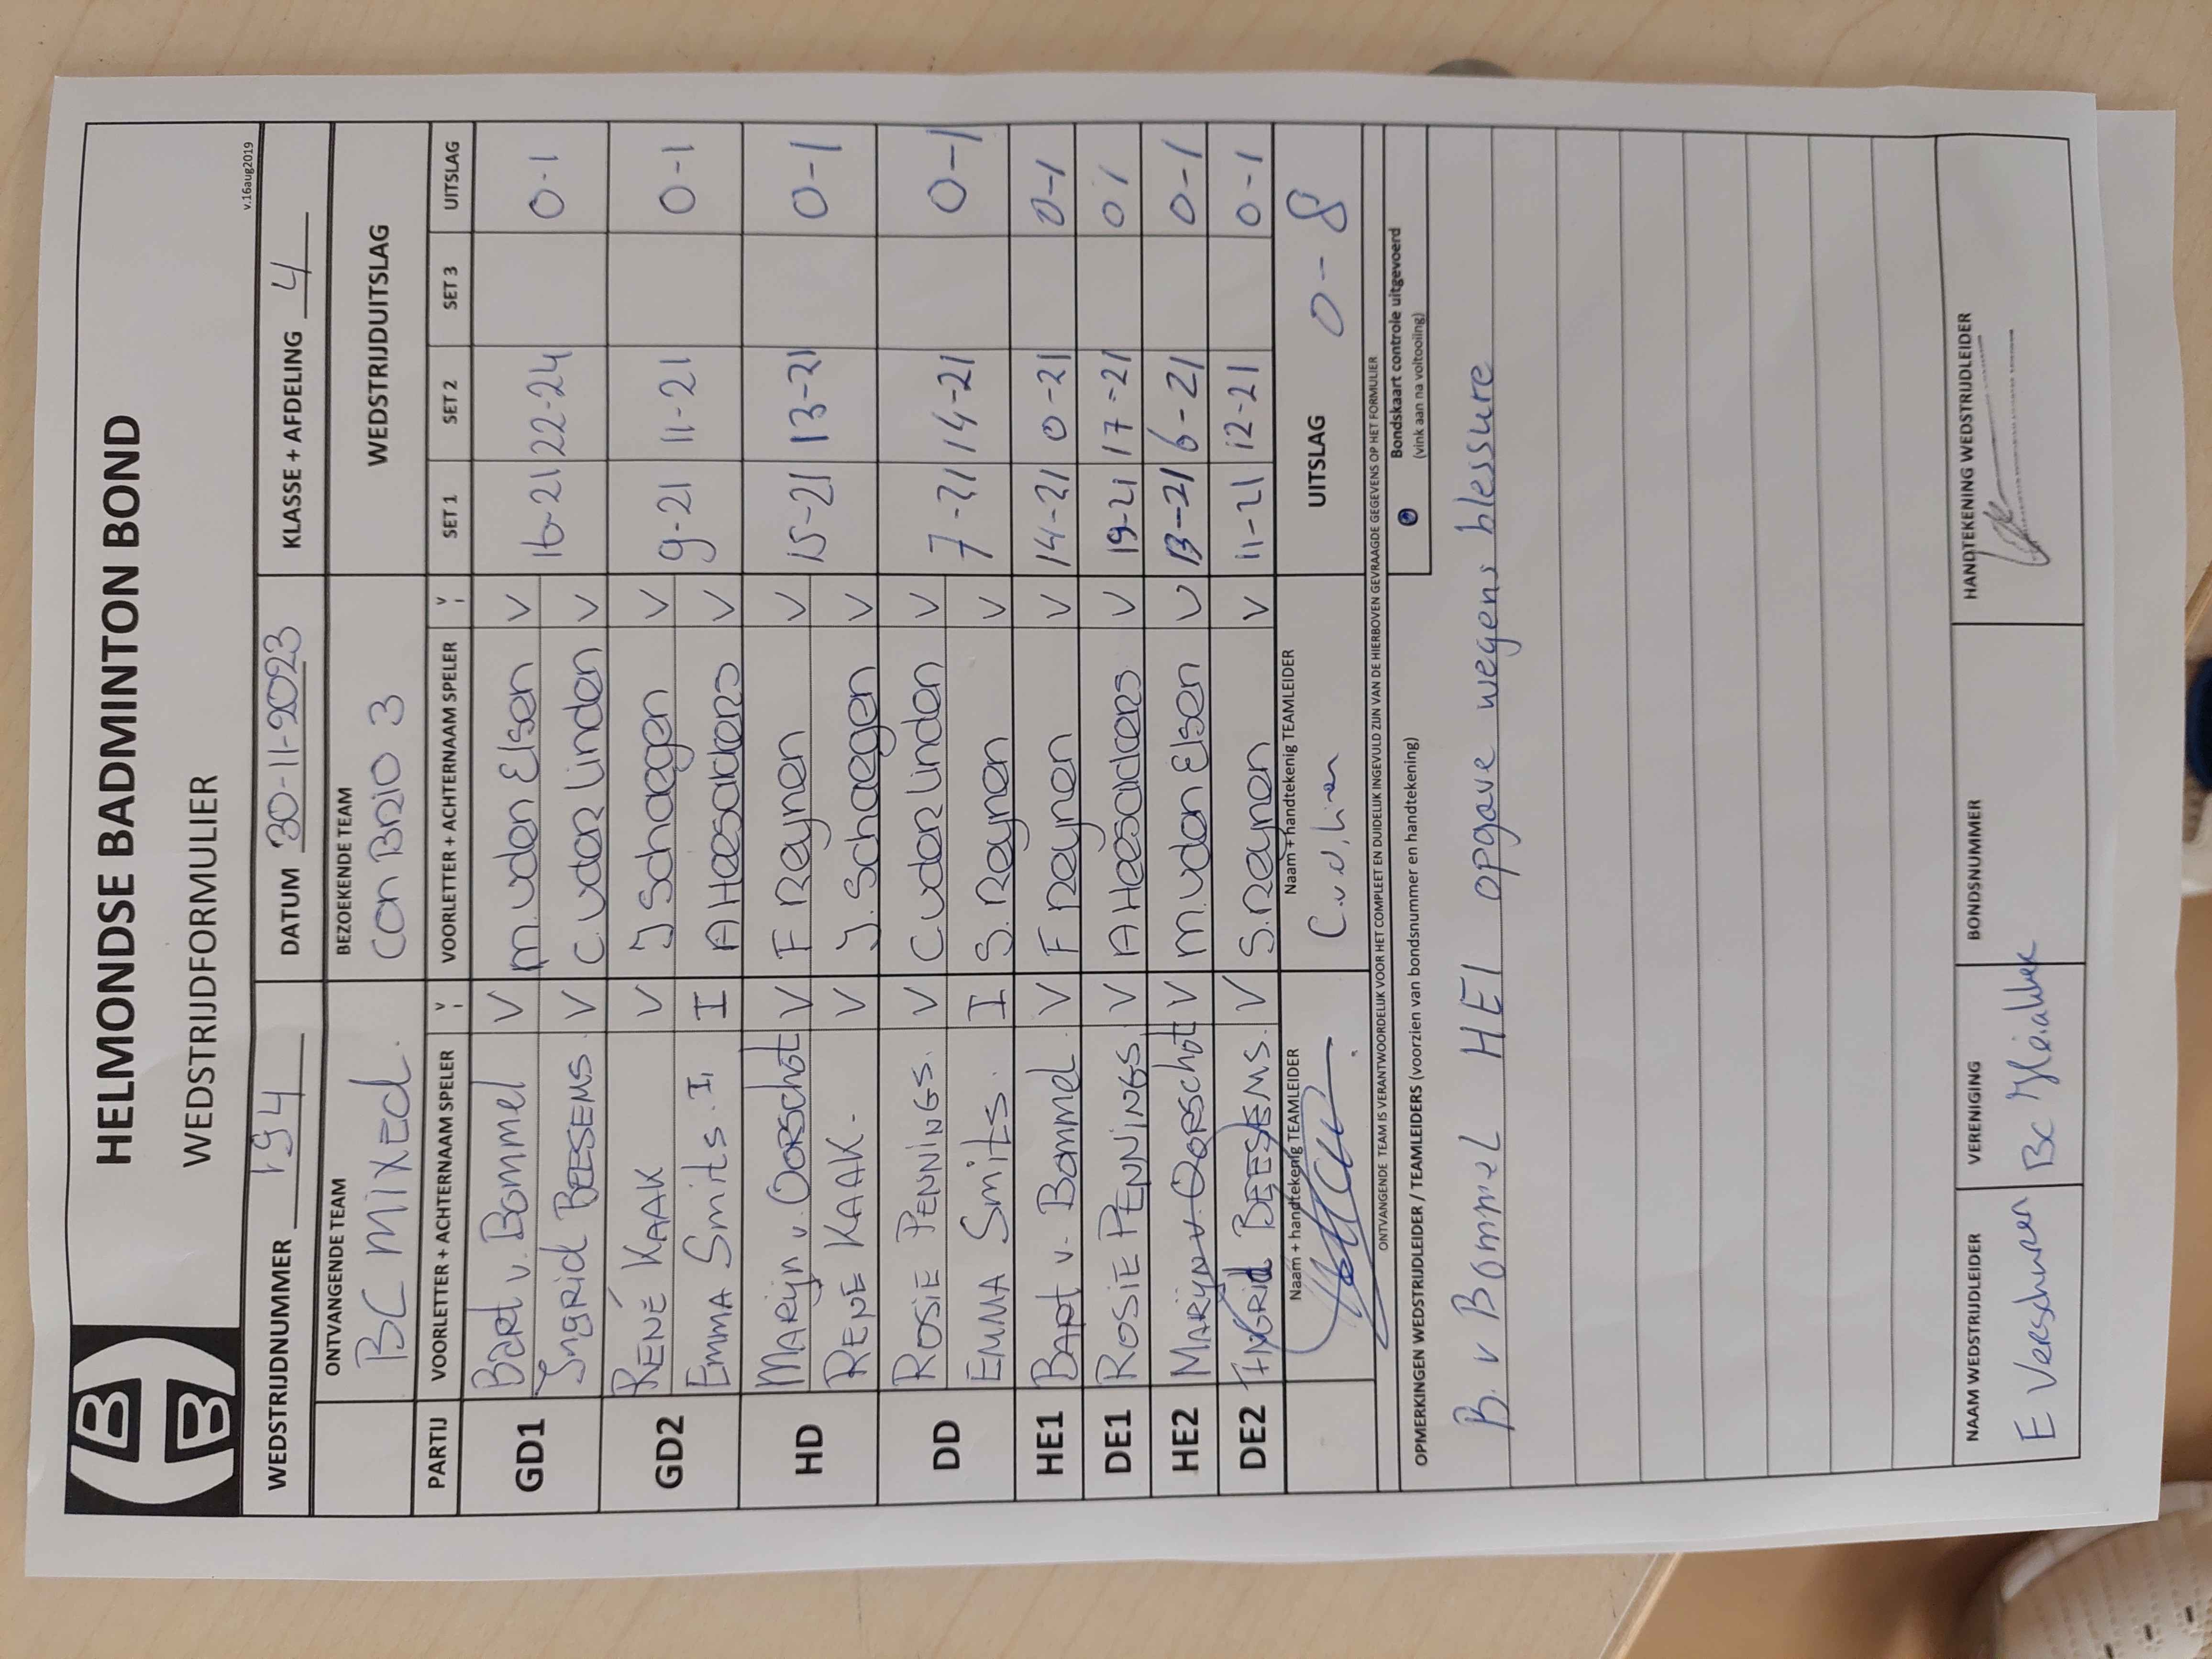 HELMONDSE BADMINTON BOND
WEDSTRIJDFORMULIER
v.16aug2019
WEDSTRIJDNUMMER 194 DATUM 30-11-2023 KLASSE + AFDELING 4
ONTVANGENDE TEAM BEZOEKENDE TEAM WEDSTRIJDUITSLAG
BC MIXED. CON BRIO 3
PARTIJ VOORLETTER + ACHTERNAAM SPELER V VOORLETTER + ACHTERNAAM SPELER V SET 1 SET 2 SET 3 UITSLAG
GD1 Bart v. Bommel V M. vden Elsen V 16-21 22-24 0-1
Ingrid BEESEMS. V C. vder Linden V
GD2 RENÉ KAAK V J Schaegen V 9-21 11-21 0-1
Emma Smits. I, I A Heesackers V
HD Marijn v. Oorschot V F Reynen V 15-21 13-21 0-1
RENE KAAK. V J. Schaegen V
DD ROSIE PENNINGS. V C vder Linden V 7-21 14-21 0-1
EMMA Smits. I S. Reynen V
HE1 BART v. Bommel. V F Reynen V 14-21 0-21 0-1
DE1 ROSIE PENNINGS. V A Heesackers V 19-21 17-21 0 1
HE2 MARIJN v. OORSCHOT V M. vden Elsen V 13-21 6-21 0-1
DE2 INGRID BEESEMS. V S. Reynen V 11-21 12-21 0-1
Naam + handtekenig TEAMLEIDER Naam + handtekenig TEAMLEIDER UITSLAG 0-8
ONTVANGENDE TEAM IS VERANTWOORDELIJK VOOR HET COMPLEET EN DUIDELIJK INGEVULD ZIJN VAN DE HIERBOVEN GEVRAAGDE GEGEVENS OP HET FORMULIER
OPMERKINGEN WEDSTRIJDLEIDER / TEAMLEIDERS (voorzien van bondsnummer en handtekening)
Bondskaart controle uitgevoerd
(vink aan na voltooiing)
B. v Bommel HE1 opgave wegens blessure
NAAM WEDSTRIJDLEIDER VERENIGING BONDSNUMMER HANDTEKENING WEDSTRIJDLEIDER
E Verschuren BC